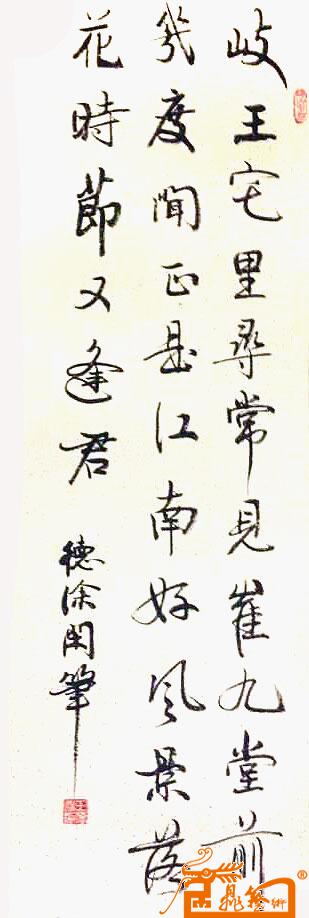 岐王宅里尋常見崔九堂前
幾度聞正是江南好風景落
花時節又逢君
德涂閑筆